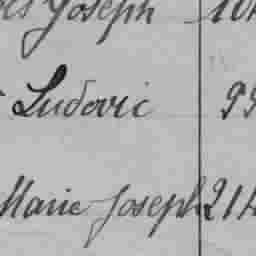 Joseph 10
Ludovic 99
Marie Joseph 214